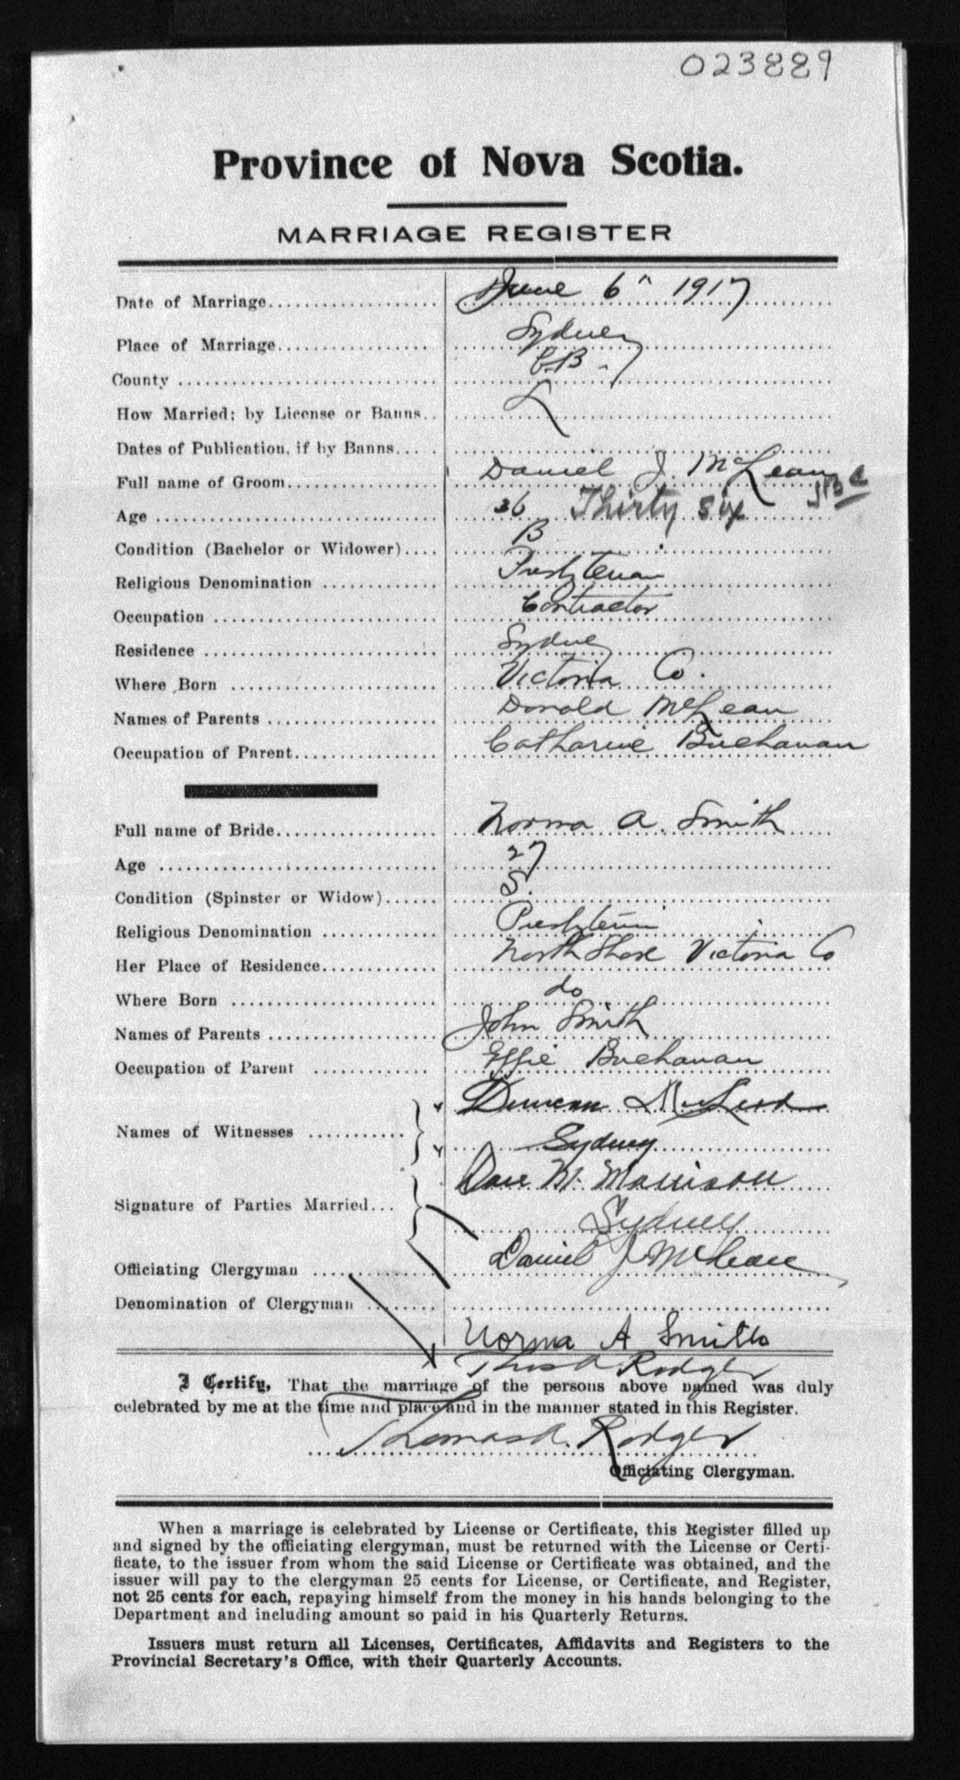 023889
Province of Nova Scotia.
MARRIAGE REGISTER
Date of Marriage.................... June 6" 1917
Place of Marriage.................. Sydney
County ............................... C.B.
How Married; by License or Banns.. L
Dates of Publication, if by Banns.....
Full name of Groom................. Daniel J. McLean
Age ................................. 36 Thirty six
Condition (Bachelor or Widower).... B
Religious Denomination ............. Presbyterian
Occupation .......................... Contractor
Residence ........................... Sydney
Where Born ........................ Victoria Co.
Names of Parents ................... Donald McLean
Occupation of Parent................ Catharine Buchanan
Full name of Bride.................. Norma A. Smith
Age ................................. 27
Condition (Spinster or Widow)...... S.
Religious Denomination ............. Presbyterian
Her Place of Residence.............. North Shore Victoria Co
Where Born ........................ do
Names of Parents ................... John Smith
Occupation of Parent .............. Effie Buchanan
Duncan
Names of Witnesses ........... Sydney
Morrison
Signature of Parties Married... Sydney
Officiating Clergyman .............. Daniel J McLean
Denomination of Clergyman .........
Norma A Smith
Thos A Rodger
I Certify, That the marriage of the persons above named was duly
celebrated by me at the time and place and in the manner stated in this Register.
Thomas A. Rodger
Officiating Clergyman.
When a marriage is celebrated by License or Certificate, this Register filled up
and signed by the officiating clergyman, must be returned with the License or Certi-
ficate, to the issuer from whom the said License or Certificate was obtained, and the
issuer will pay to the clergyman 25 cents for License, or Certificate, and Register,
not 25 cents for each, repaying himself from the money in his hands belonging to the
Department and including amount so paid in his Quarterly Returns.
Issuers must return all Licenses, Certificates, Affidavits and Registers to the
Provincial Secretary's Office, with their Quarterly Accounts.